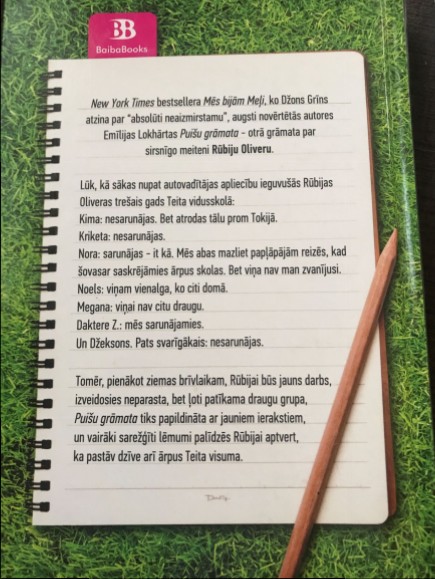 BB
BaibaBooks
New York Times bestsellera Mēs bijām Meļi, ko Džons Grīns
atzina par “absolūti neaizmirstamu”, augsti novērtētās autores
Emīlijas Lokhārtas Puišu grāmata - otrā grāmata par
sirsnīgo meiteni Rūbiju Oliveru.
Lūk, kā sākas nupat autovadītājas apliecību ieguvušās Rūbijas
Oliveras trešais gads Teita vidusskolā:
Kima: nesarunājas. Bet atrodas tālu prom Tokijā.
Kriketa: nesarunājas.
Nora: sarunājas - it kā. Mēs abas mazliet papļāpājām reizēs, kad
šovasar saskrējāmies ārpus skolas. Bet viņa nav man zvanījusi.
Noels: viņam vienalga, ko citi domā.
Megana: viņai nav citu draugu.
Daktere Z.: mēs sarunājamies.
Un Džeksons. Pats svarīgākais: nesarunājas.
Tomēr, pienākot ziemas brīvlaikam, Rūbijai būs jauns darbs,
izveidosies neparasta, bet ļoti patīkama draugu grupa,
Puišu grāmata tiks papildināta ar jauniem ierakstiem,
un vairāki sarežģīti lēmumi palīdzēs Rūbijai aptvert,
ka pastāv dzīve arī ārpus Teita visuma.